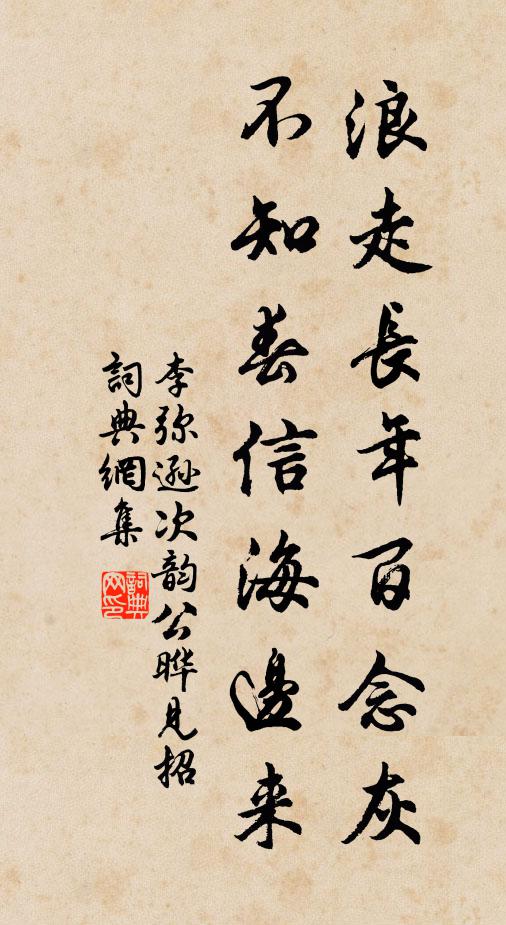 浪走長年百念灰
不知春信海邊来
李弥遜次韵公曄見招
詞典網集
詞典网印